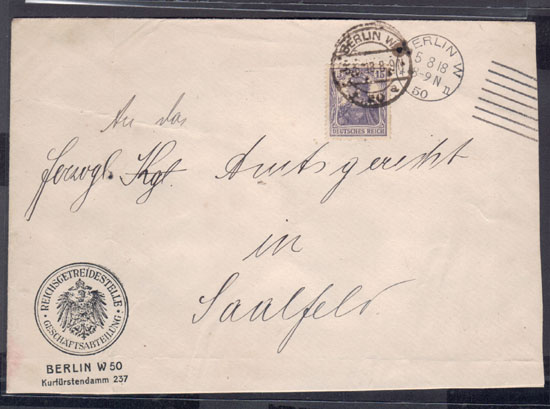 BERLIN W
5.8.18.8-9N
* 50 a
BERLIN W
5 8 18
8-9 N
50 n
15
DEUTSCHES REICH
An das
Herzogl. Kgl. Amtsgericht
in
Saalfeld.
REICHSGETREIDESTELLE
GESCHÄFTSABTEILUNG
BERLIN W 50
Kurfürstendamm 237